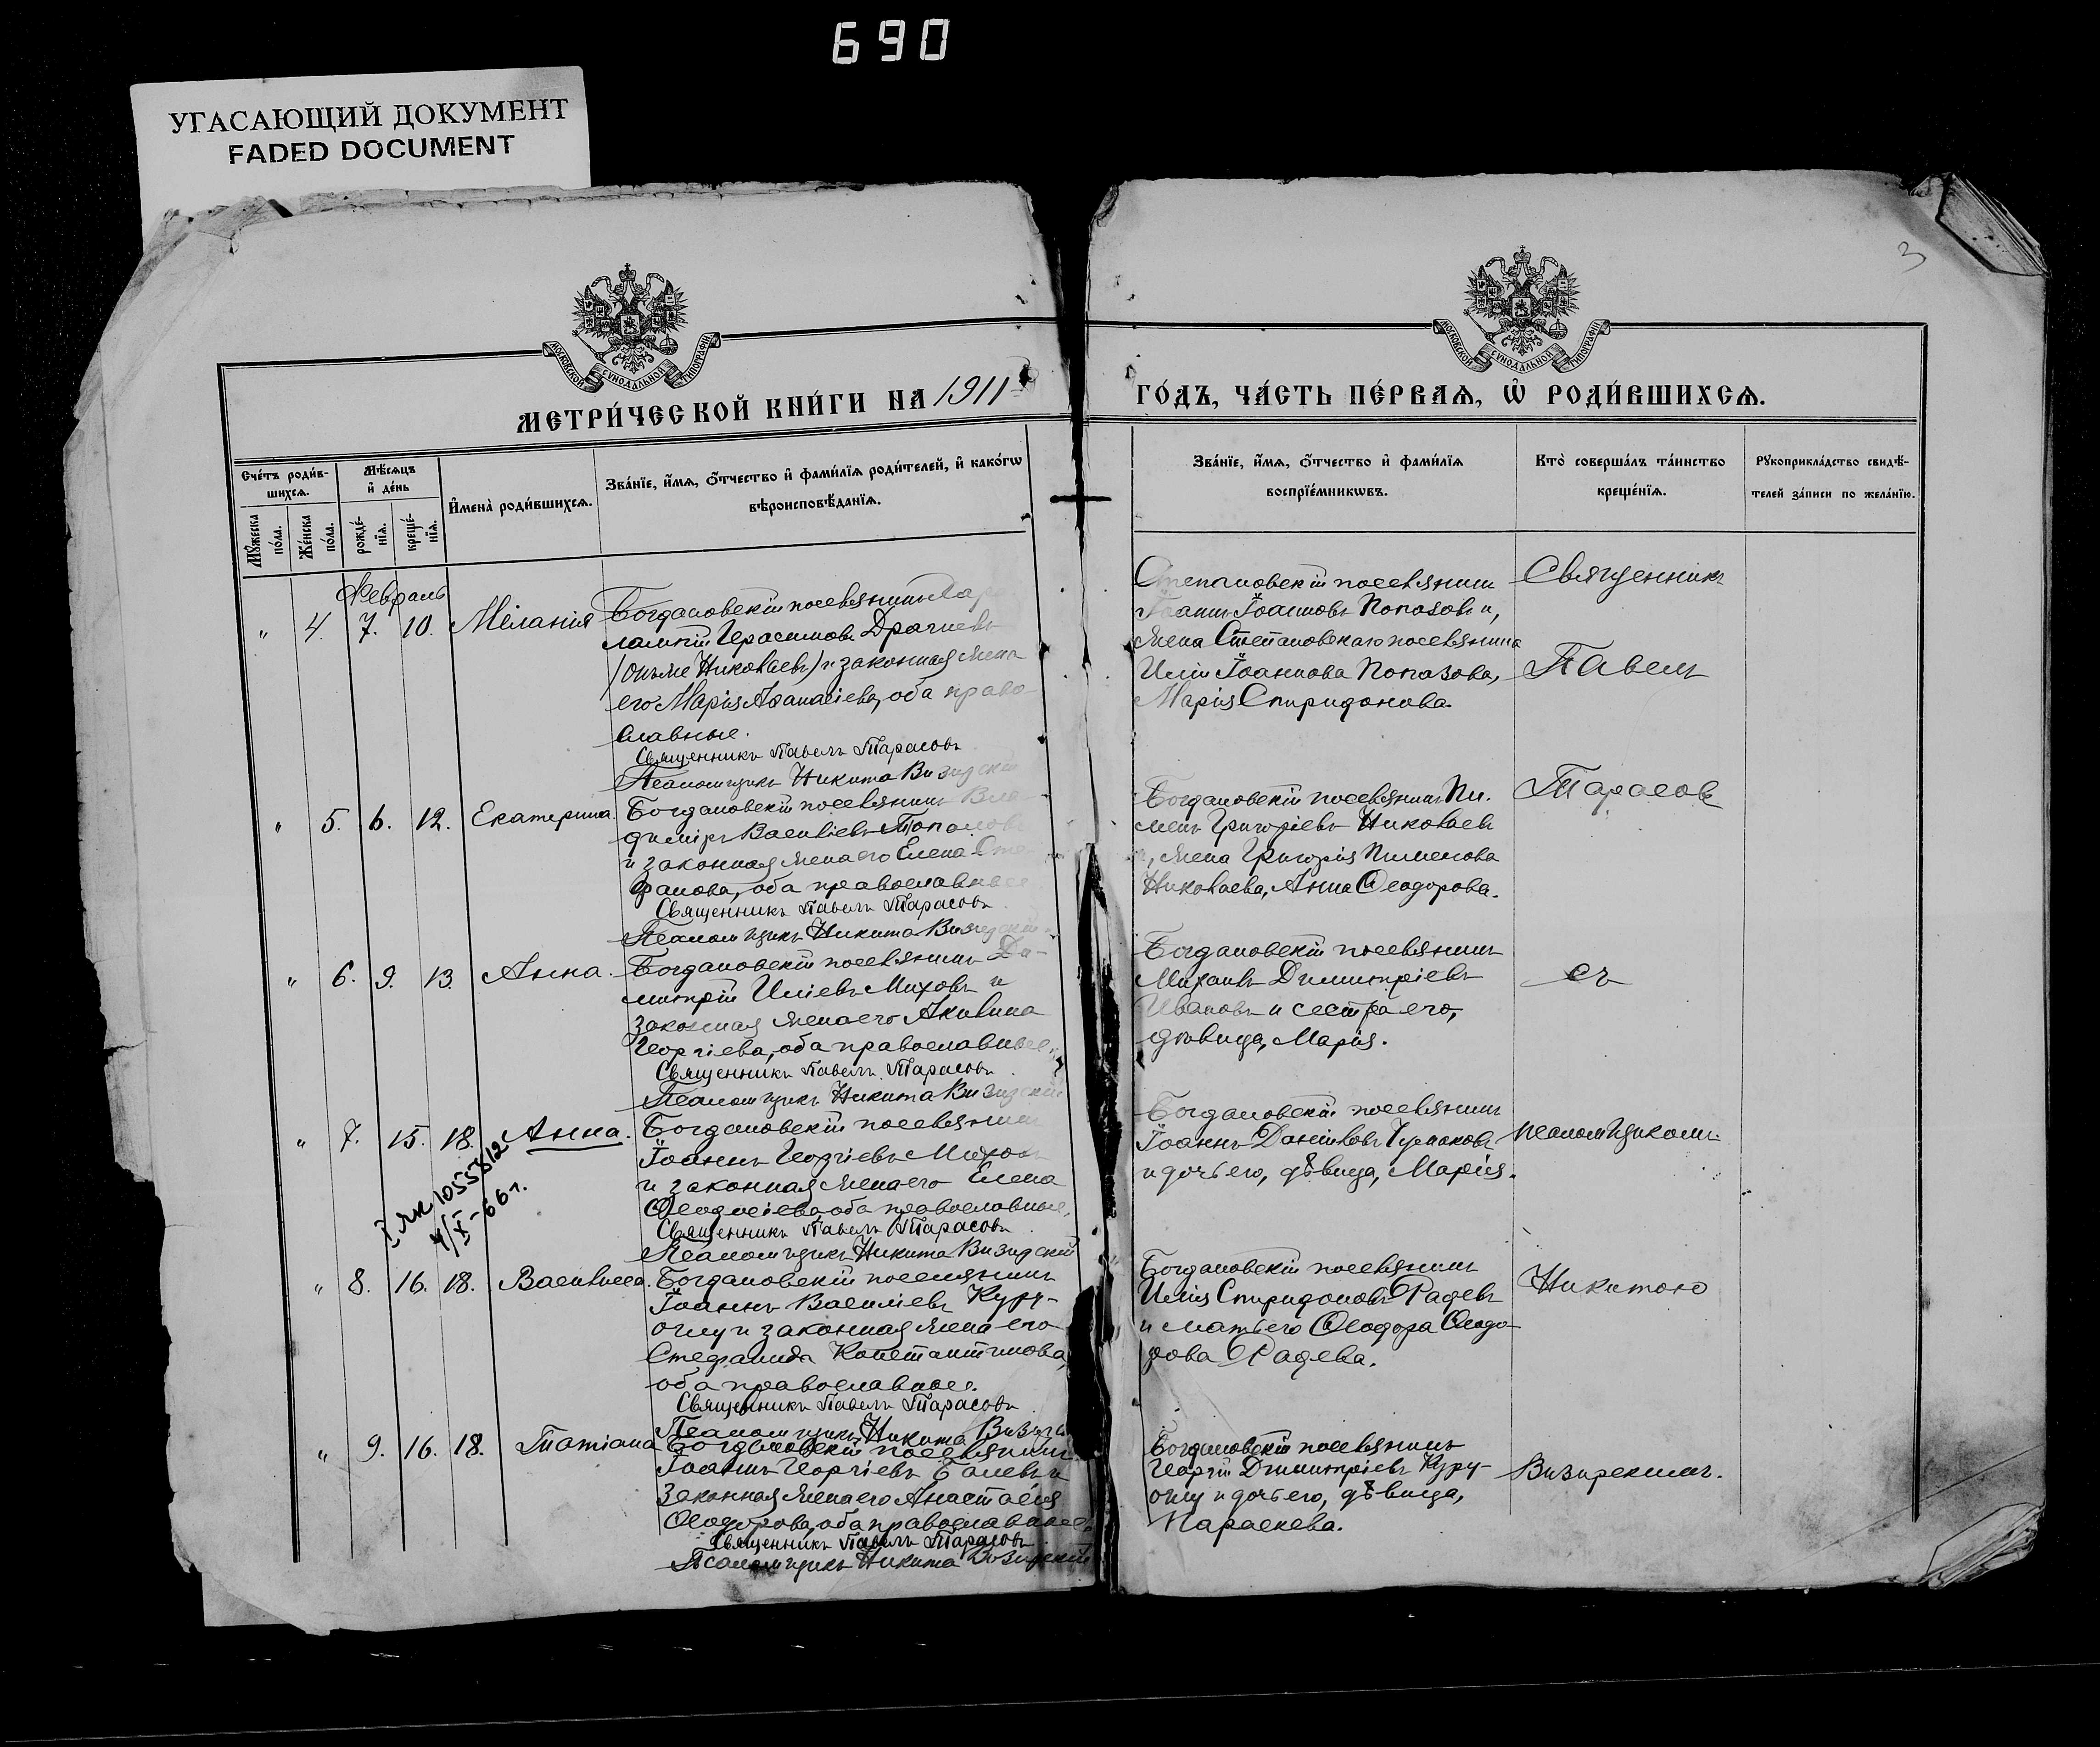 690
УГАСАЮЩИЙ ДОКУМЕНТ
FADED DOCUMENT
3
МОСКОВСКОЙ СУНОДАЛЬНОЙ ТИПОГРАФІИ
МОСКОВСКОЙ СУНОДАЛЬНОЙ ТИПОГРАФІИ
МЕТРИ́ЧЕСКОЙ КНИ́ГИ НА 1911
ГО́ДЪ, ЧА́СТЬ ПЕ́РВАѦ, Ѡ҆ РОДИ́ВШИХСѦ.
Сче́тъ роди́в-
шихсѧ.
Мѣ́сѧцъ
и҆ де́нь
И҆мена̀ роди́вшихсѧ.
Зва́нїе, и҆́мѧ, ѻ҆́тчество и҆ фами́лїѧ роди́телей, и҆ како́гѡ
вѣроисповѣ́данїѧ.
Мꙋ́жеска
по́ла.
Же́нска
по́ла.
рожде́-
нїѧ.
креще́-
нїѧ.
Зва́нїе, и҆́мѧ, ѻ҆́тчество и҆ фами́лїѧ
воспрїе́мникѡвъ.
Кто̀ соверша́лъ та́инство
креще́нїѧ.
Рꙋкоприкла́дство свидѣ́-
телей за́писи по жела́нїю.
Февраль
" 4. 7. 10. Меланія
Богдановскій поселянинъ
лампій Герасимовъ Драгневъ
(онъ же Николаевъ) и законная жена
его Марія Аѳанасіева, оба право-
славные.
Священникъ Павелъ Тарасовъ
Псаломщикъ Никита Визирскій
Степановскій поселянинъ
Іоаннъ Іоанновъ Попазовъ и,
жена Степановскаго поселянина
Иліи Іоаннова Попазова,
Марія Спиридонова.
Священникъ
Павелъ
" 5. 6. 12. Екатерина.
Богдановскій поселянинъ Вла-
диміръ Василіевъ
и законная жена его Елена Сте-
фанова, оба православные
Священникъ Павелъ Тарасовъ
Псаломщикъ Никита Визирскій
Богдановскій поселянинъ Пи-
менъ Григоріевъ Николаевъ
и, жена Григорія Пименова
Николаева, Анна Ѳеодорова.
Тарасовъ
" 6. 9. 13. Анна.
Богдановскій поселянинъ Ди-
митрій Иліевъ Миховъ и
законная жена его Акилина
Георгіева, оба православные.
Священникъ Павелъ Тарасовъ
Псаломщикъ Никита Визирскій
Богдановскій поселянинъ
Михаилъ Димитріевъ
Ивановъ и сестра его,
дѣвица, Марія.
съ
" 7. 15. 18. Анна.
I ЯК 1055812
4/X-66 г.
Богдановскій поселянинъ
Іоаннъ Георгіевъ Миховъ
и законная жена его Елена
Ѳеодосіева, оба православные.
Священникъ Павелъ Тарасовъ
Псаломщикъ Никита Визирскій
Богдановскій поселянинъ
Іоаннъ Даніиловъ
и дочь его, дѣвица, Марія.
псаломщикомъ
" 8. 16. 18. Василисса.
Богдановскій поселянинъ
Іоаннъ Василіевъ Куру-
оглу и законная жена его
Стефанида Константинова,
оба православные.
Священникъ Павелъ Тарасовъ
Псаломщикъ Никита
Богдановскій поселянинъ
Илія Спиридоновъ Радевъ
и мать его Ѳеодора Ѳеодо-
рова Радева.
Никитою
" 9. 16. 18. Татіана
Богдановскій поселянинъ
Іоаннъ Георгіевъ и
законная жена его Анастасія
Ѳеодорова, оба православные.
Священникъ Павелъ Тарасовъ
Псаломщикъ Никита Визирскій
Богдановскій поселянинъ
Георгій Димитріевъ Куру-
оглу и дочь его, дѣвица,
Параскева.
Визирскимъ.